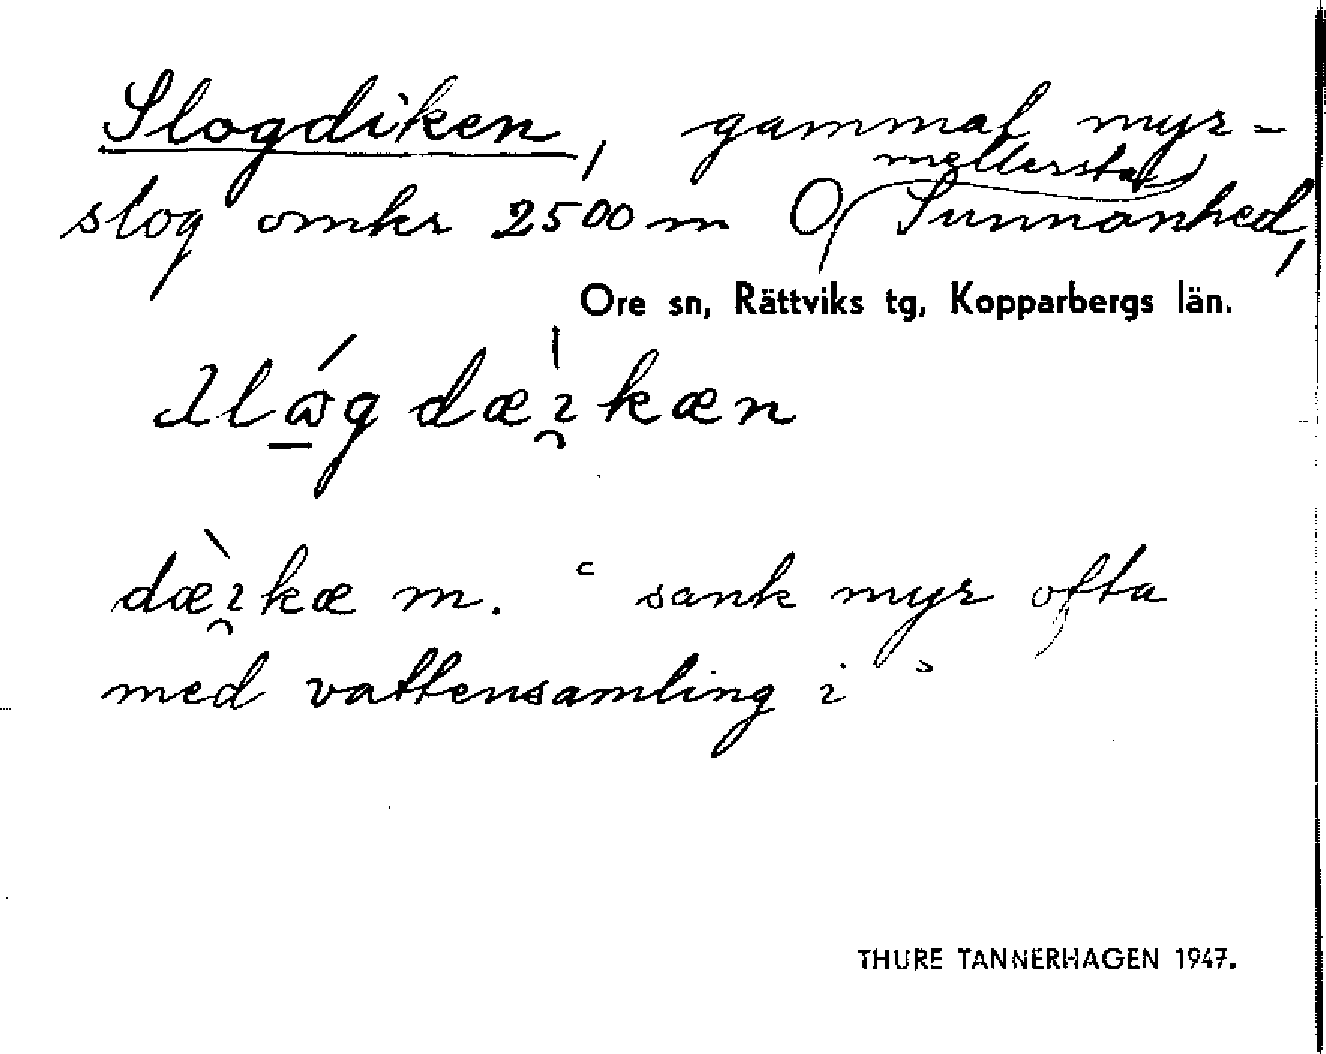 Slogdiken, gammal myr-
mellersta
slog omkr 2500 m O Sunnanhed,
Ore sn, Rättviks tg, Kopparbergs län.
dæ̀ı̯kæ m. ʿ sank myr ofta
med vattensamling i ʾ
THURE TANNERHAGEN 1947.